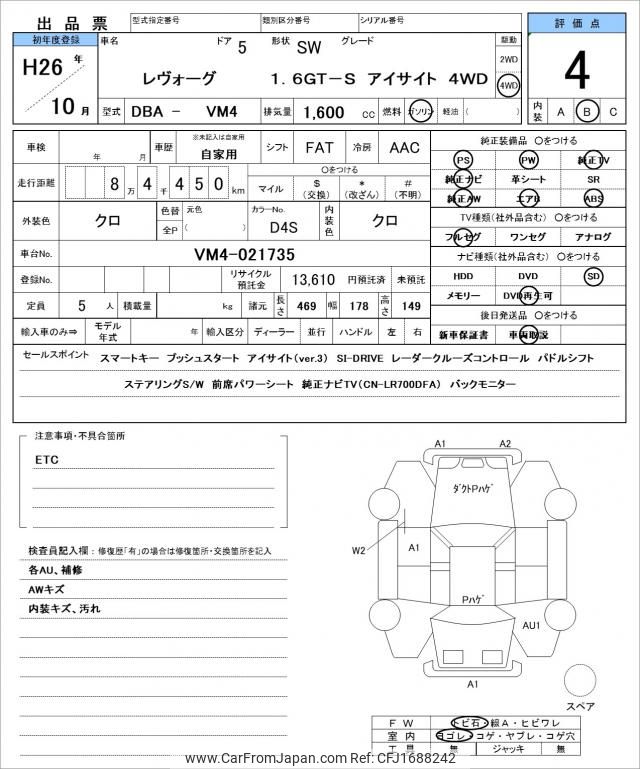 出品票 型式指定番号 類別区分番号 シリアル番号
評価点
4
内装 A B C
初年度登録
H26年
10月
車名 ドア 5 形状 SW グレード
レヴォーグ 1.6GT-S アイサイト 4WD
駆動
2WD
4WD
型式 DBA - VM4 排気量 1,600 cc 燃料 ガソリン 軽油 ( )
車検 年 月 車歴 ※未記入は自家用 自家用 シフト FAT 冷房 AAC
走行距離 8万4千450km
〇をつける
マイル $(交換) *(改ざん) #(不明)
外装色 クロ 色替 元色 全P ( ) カラーNo. D4S 内装色 クロ
車台No. VM4-021735
登録No. リサイクル預託金 13,610 円預託済 未預託
定員 5 人 積載量 kg 諸元 長さ 469 幅 178 高さ 149
輸入車のみ⇒ モデル年式 年 輸入区分 ディーラー 並行 ハンドル 左 右
純正装備品 〇をつける
PS PW 純正TV
純正ナビ 革シート SR
純正AW エアB ABS
TV種類(社外品含む) 〇をつける
フルセグ ワンセグ アナログ
ナビ種類(社外品含む) 〇をつける
HDD DVD SD
メモリー DVD再生可
後日発送品 〇をつける
新車保証書 車両取説
セールスポイント スマートキー プッシュスタート アイサイト(ver.3) SI-DRIVE レーダークルーズコントロール パドルシフト
ステアリングS/W 前席パワーシート 純正ナビTV(CN-LR700DFA) バックモニター
注意事項・不具合箇所
ETC
検査員記入欄：修復歴「有」の場合は修復箇所・交換箇所を記入
各AU、補修
AWキズ
内装キズ、汚れ
A1 A2
ダクトPハゲ
W2
A1
Pハゲ
AU1
A1
スペア
FW トビ石・線A・ヒビワレ
室内 ヨゴレ・コゲ・ヤブレ・コゲ穴
工具 無 ジャッキ 無
www.CarFromJapan.com Ref: CFJ1688242